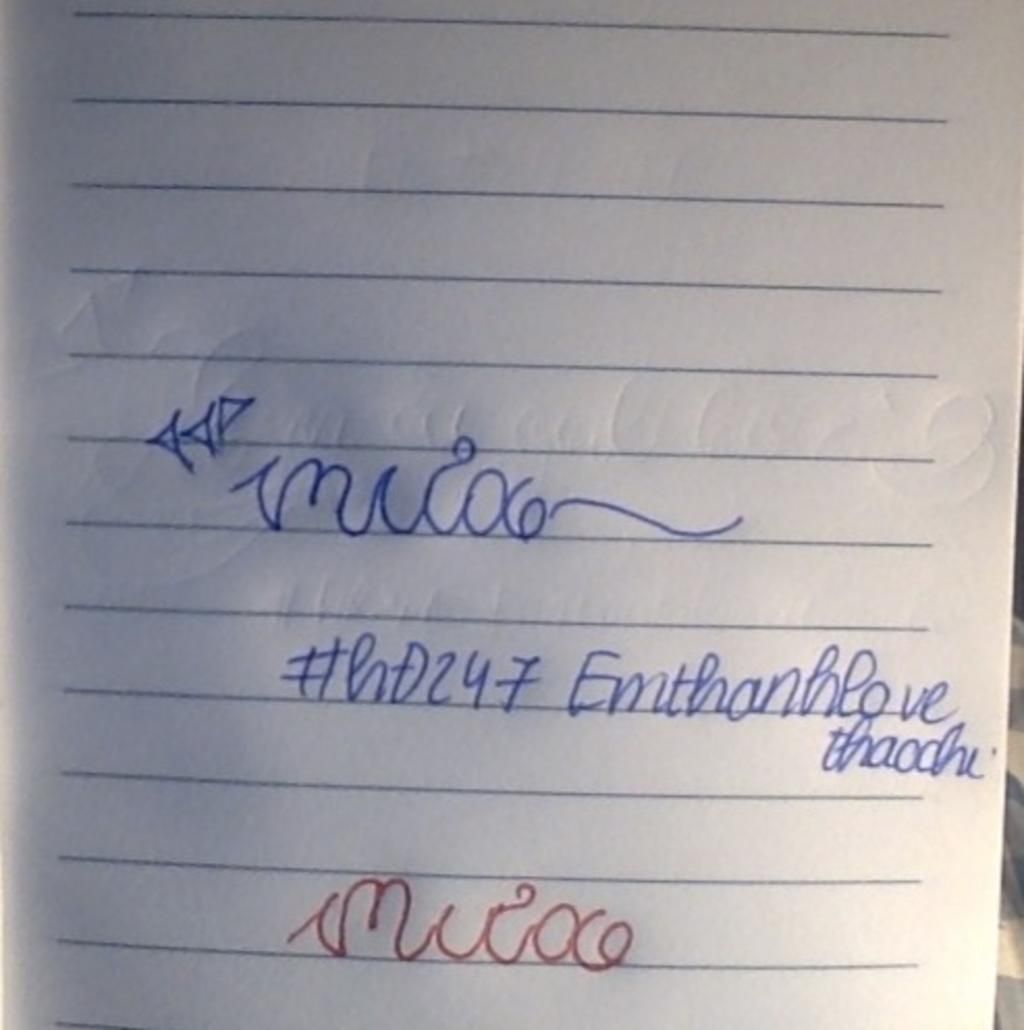 mưa
#hĐ247 Emthanhlove
thaochi
mưa